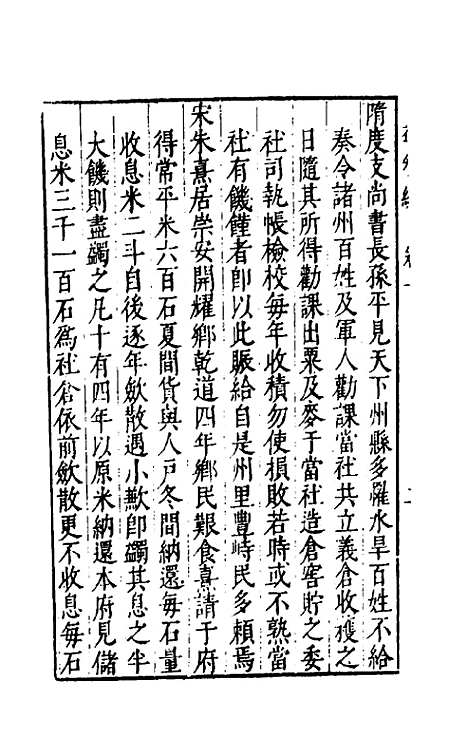 隋度支尚書長孫平見天下州縣多罹水旱百姓不給
奏令諸州百姓及軍人勸課當社共立義倉收穫之
日隨其所得勸課出粟及麥于當社造倉窖貯之委
社司執帳檢校每年收積勿使損敗若時或不熟當
社有饑饉者即以此賑給自是州里豐峙民多賴焉
宋朱熹居崇安開耀鄉乾道四年鄉民艱食熹請于府
得常平米六百石夏間貸與人戶冬間納還每石量
收息米二斗自後逐年斂散遇小歉即蠲其息之半
大饑則盡蠲之凡十有四年以原米納還本府見儲
息米三千一百石爲社倉依前斂散更不收息每石